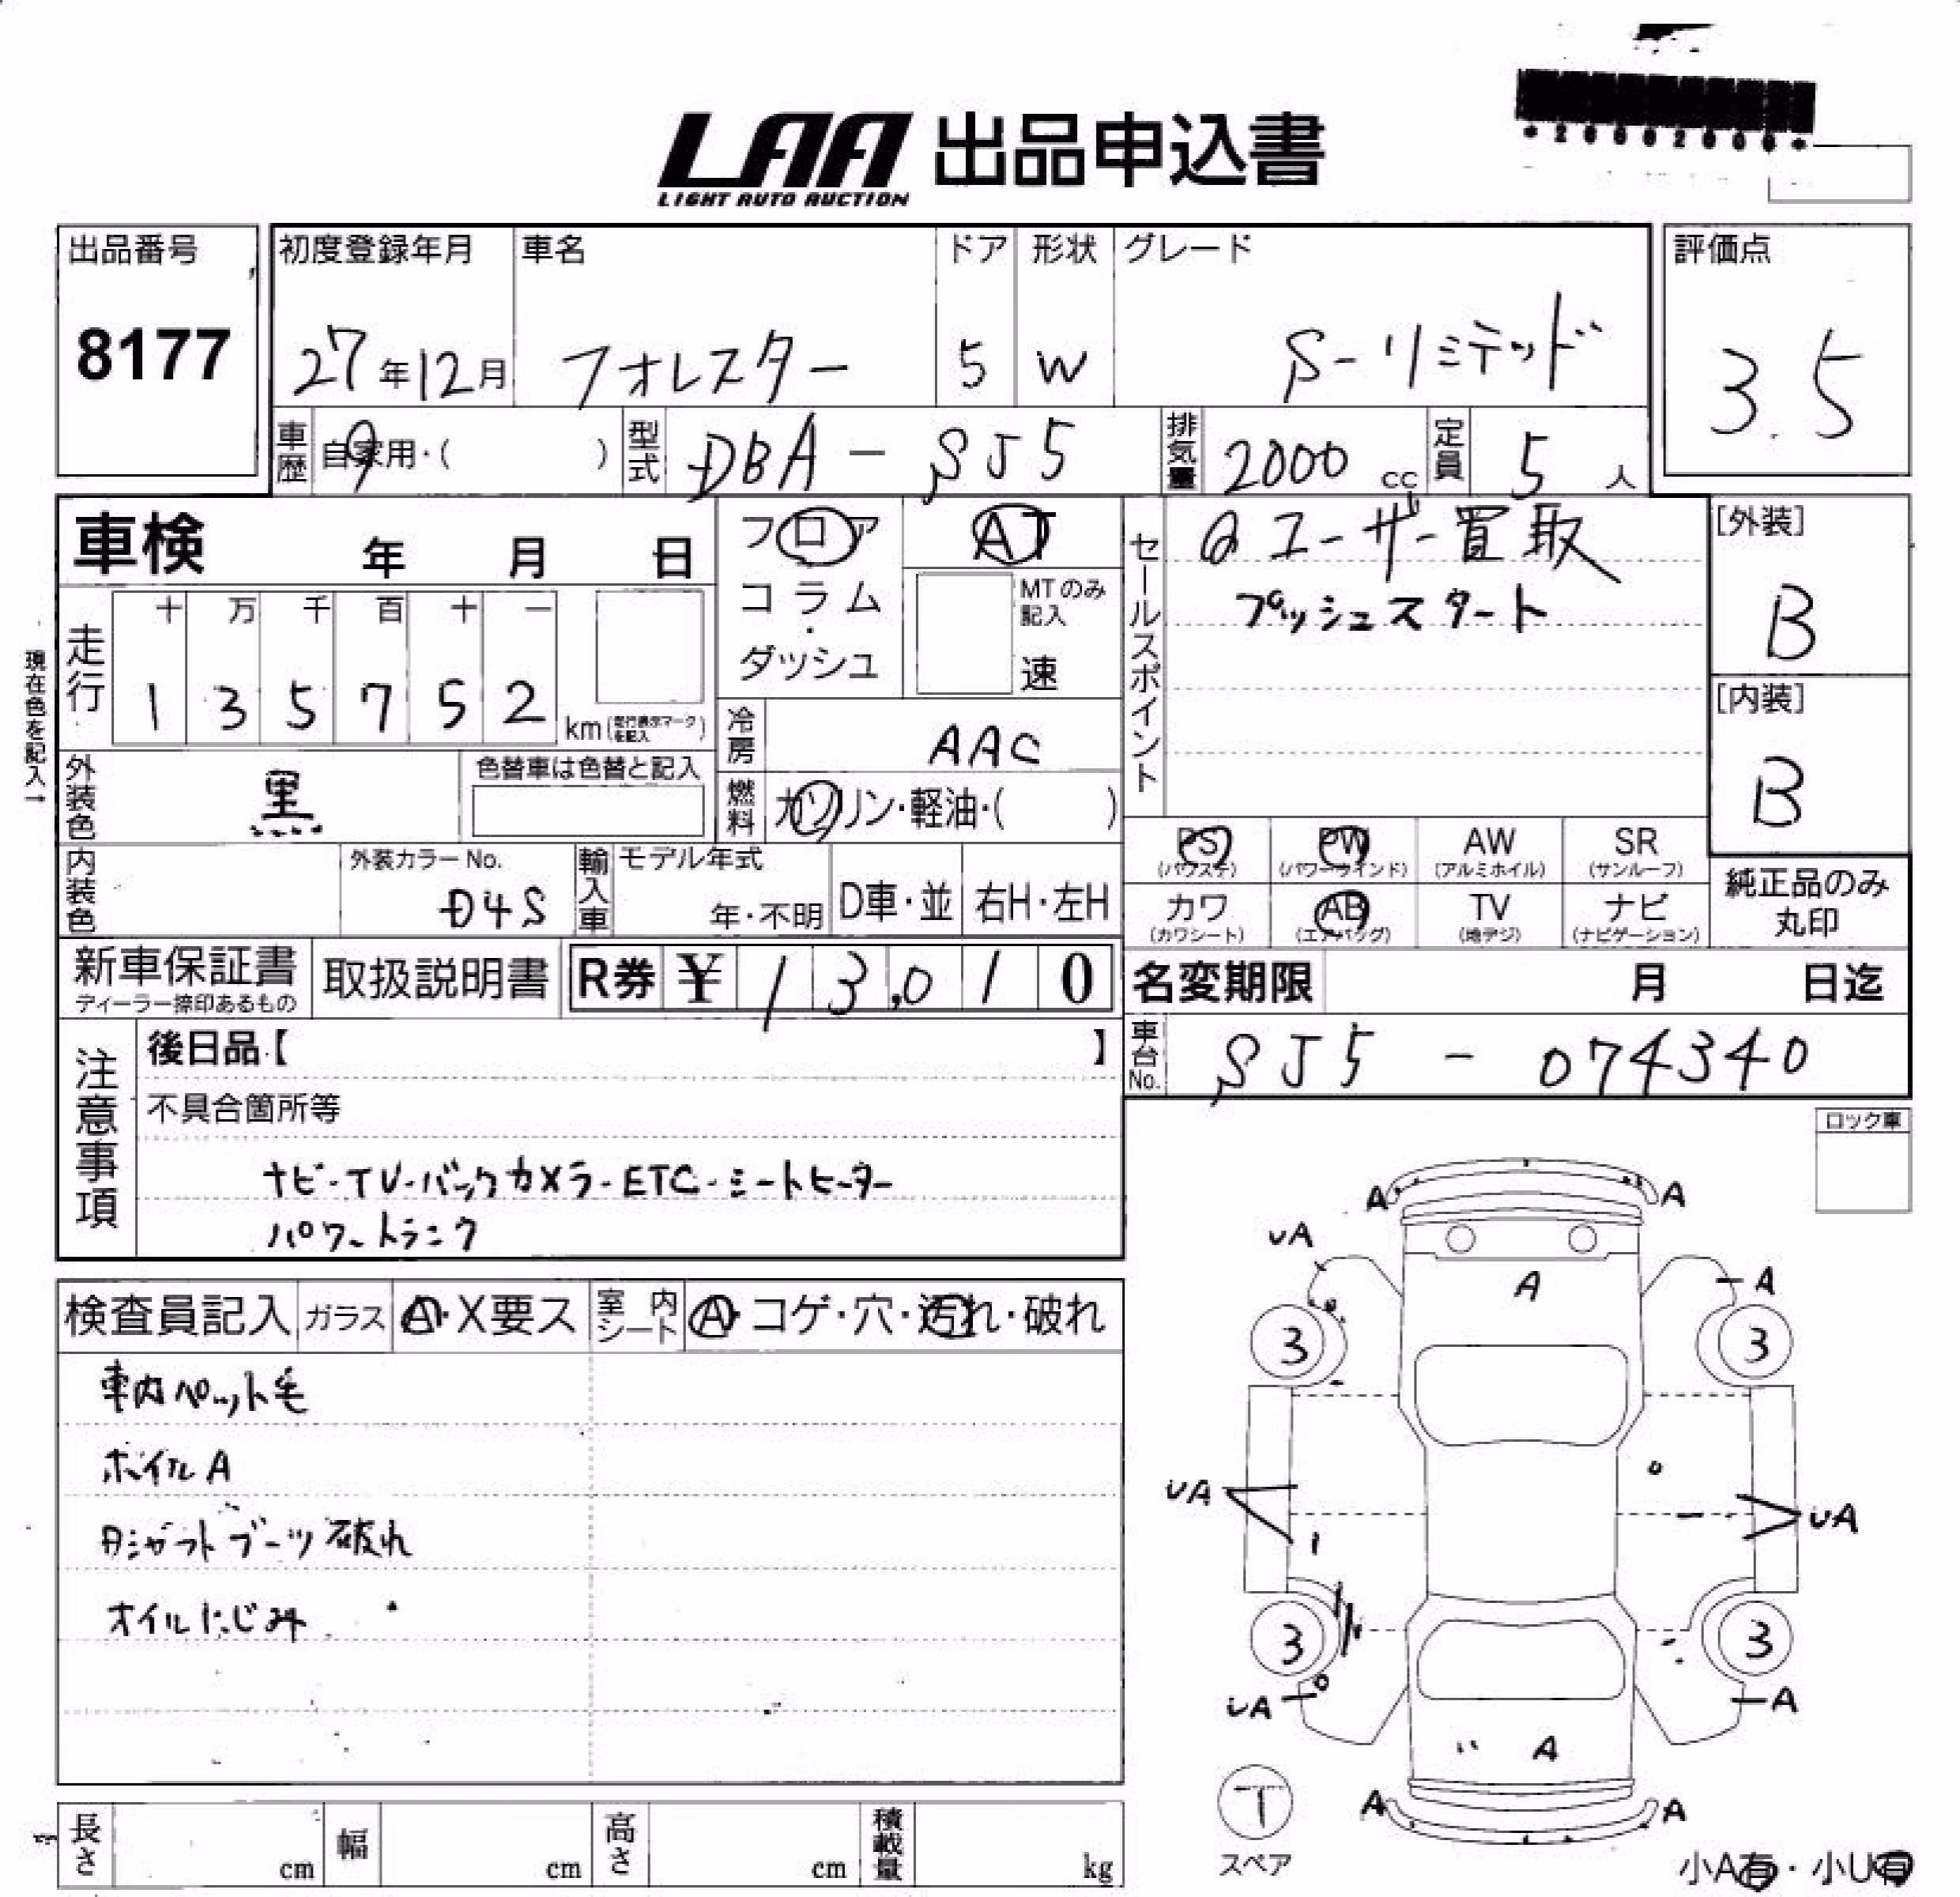 LAA 出品申込書
LIGHT AUTO AUCTION
出品番号
8177
初度登録年月
27年12月
車名
フォレスター
ドア
5
形状
W
グレード
S-リミテッド
評価点
3.5
車歴
自家用・( )
型式
DBA-SJ5
排気量
2000 cc
定員
5人
車検 年 月 日
現在色を記入→
走行
十 万 千 百 十 一
1 3 5 7 5 2 km(走行表示マークを記入)
フロア
コラム
・
ダッシュ
AT
MTのみ記入
速
セールスポイント
ユーザー買取
プッシュスタート
[外装]
B
[内装]
B
冷房
AAC
燃料
ガソリン・軽油・( )
外装色
黒
色替車は色替と記入
内装色
外装カラーNo.
D4S
輸入車
モデル年式
年・不明
D車・並
右H・左H
PS
(パワステ)
PW
(パワーウインド)
AW
(アルミホイル)
SR
(サンルーフ)
カワ
(カワシート)
AB
(エアバッグ)
TV
(地デジ)
ナビ
(ナビゲーション)
純正品のみ
丸印
新車保証書
ディーラー捺印あるもの
取扱説明書
R券 ¥13,010
名変期限 月 日迄
車台No.
SJ5-074340
注意事項
後日品【 】
不具合箇所等
ナビ・TV・バックカメラ・ETC・シートヒーター
パワートランク
ロック車
検査員記入
ガラス
A・X要ス
室内
シート
A・コゲ・穴・汚れ・破れ
車内ペット毛
ホイルA
シャフトブーツ破れ
オイルにじみ
A A
UA A A
3 3
UA UA
3 3
UA A
A
A A
T
スペア
小A有・小U有
長さ cm
幅 cm
高さ cm
積載量 kg